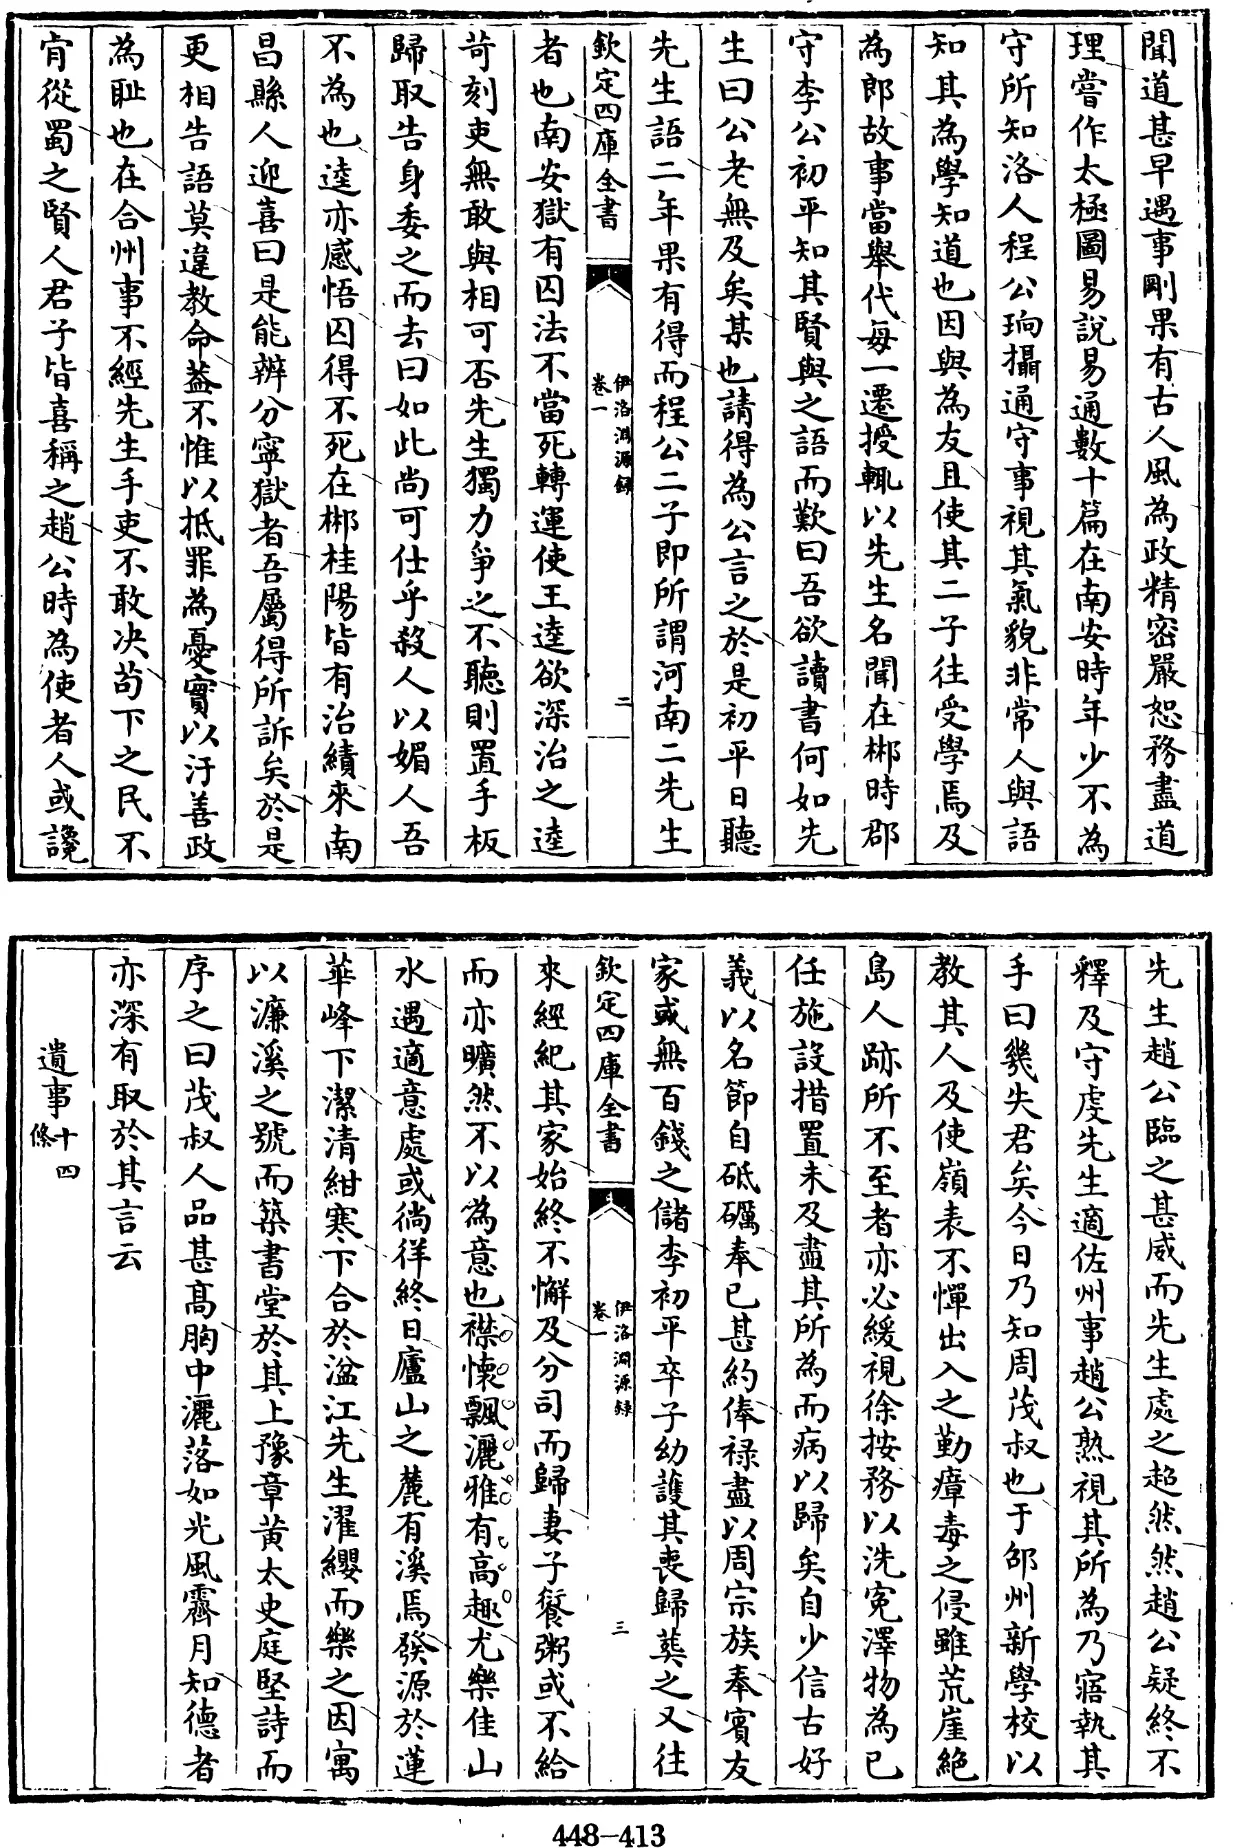 聞道甚早遇事剛果有古人風為政精密嚴恕務盡道
理嘗作太極圖易說易通數十篇在南安時年少不為
守所知洛人程公珦攝通守事視其氣貌非常人與語
知其為學知道也因與為友且使其二子往受學焉及
為郎故事當舉代每一遷授輒以先生名聞在郴時郡
守李公初平知其賢與之語而歎曰吾欲讀書何如先
生曰公老無及矣某也請得為公言之於是初平日聽
先生語二年果有得而程公二子即所謂河南二先生
欽定四庫全書
伊洛淵源錄
卷一
二
者也南安獄有囚法不當死轉運使王逵欲深治之逵
苛刻吏無敢與相可否先生獨力爭之不聽則置手板
歸取告身委之而去曰如此尚可仕乎殺人以媚人吾
不為也逵亦感悟囚得不死在郴桂陽皆有治績來南
昌縣人迎喜曰是能辨分寧獄者吾屬得所訴矣於是
更相告語莫違教命葢不惟以抵罪為憂實以汙善政
為恥也在合州事不經先生手吏不敢決苟下之民不
肯從蜀之賢人君子皆喜稱之趙公時為使者人或讒
先生趙公臨之甚威而先生處之超然然趙公疑終不
釋及守虔先生適佐州事趙公熟視其所為乃寤執其
手曰幾失君矣今日乃知周茂叔也于邵州新學校以
教其人及使嶺表不憚出入之勤瘴毒之侵雖荒崖絕
島人跡所不至者亦必緩視徐按務以洗寃澤物為已
任施設措置未及盡其所為而病以歸矣自少信古好
義以名節自砥礪奉已甚約俸祿盡以周宗族奉賓友
家或無百錢之儲李初平卒子幼護其喪歸葬之又往
欽定四庫全書
伊洛淵源錄
卷一
三
來經紀其家始終不懈及分司而歸妻子饘粥或不給
而亦曠然不以為意也襟懷飄灑雅有高趣尤樂佳山
水遇適意處或徜徉終日廬山之麓有溪焉發源於蓮
華峰下潔清紺寒下合於湓江先生濯纓而樂之因寓
以濂溪之號而築書堂於其上豫章黃太史庭堅詩而
序之曰茂叔人品甚高胸中灑落如光風霽月知德者
亦深有取於其言云
遺事十四條
448-413